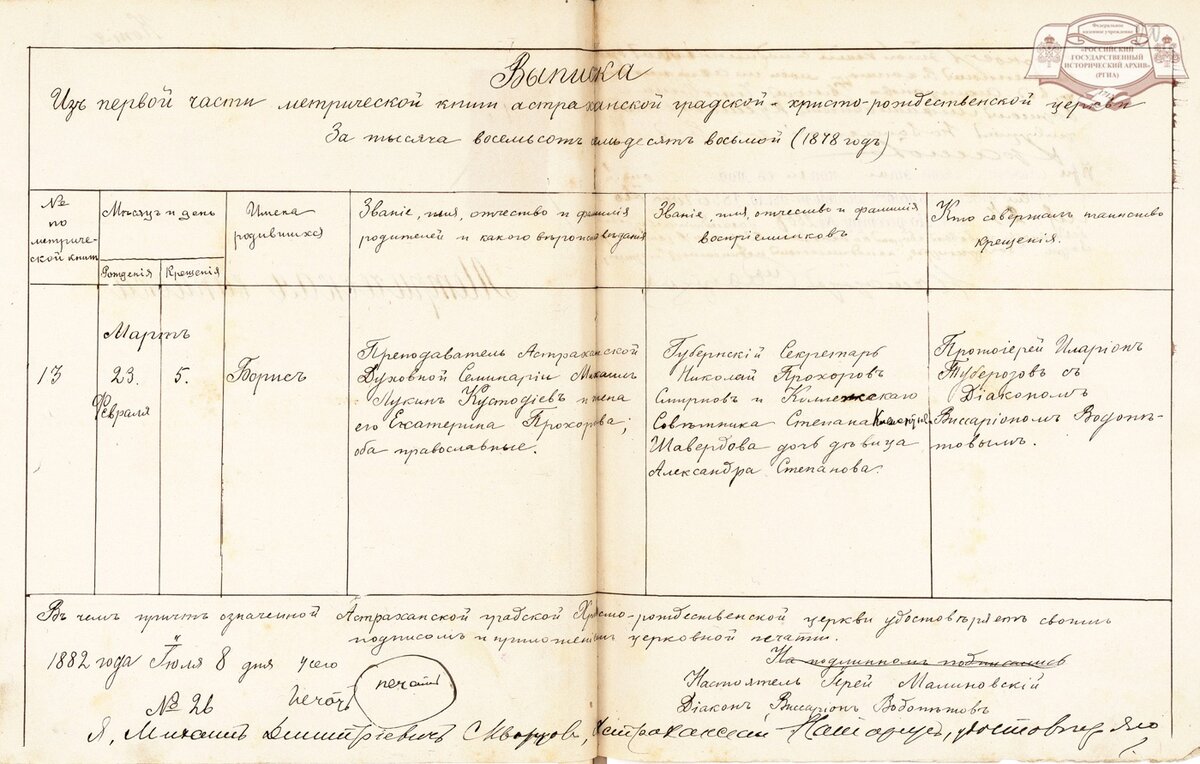 Федеральное
казенное учреждение
«РОССИЙСКИЙ
ГОСУДАРСТВЕННЫЙ
ИСТОРИЧЕСКИЙ АРХИВ»
(РГИА)
Выписка
Изъ первой части метрической книги астраханской градской христо-рождественской церкви
За тысяча восемьсотъ семьдесятъ восьмой (1878 годъ)
№ по метрической книги
Мѣсяцъ и день
Рожденія Крещенія
Имена родившихся
Званіе, имя, отчество и фамилія
родителей и какого вѣроисповѣданія
Званіе, имя, отчество и фамилія
воспріемниковъ
Кто совершалъ таинство
крещенія.
13
Мартъ
23. 5.
Февраля
Борисъ
Преподаватель Астраханской
Духовной Семинаріи Михаилъ
Лукинъ Кустодіевъ и жена
его Екатерина Прохорова;
оба православные.
Губернскій Секретарь
Николай Прохоровъ
Смирновъ и Коллежскаго
Совѣтника Степана
Шавердова дочь дѣвица
Александра Степанова.
Протоіерей Иларіонъ
Туберозовъ съ
Діакономъ
Виссаріономъ Водопь-
товымъ.
Въ чемъ причтъ означенной Астраханской градской Христо-рождественской церкви удостовѣряетъ своимъ
подписомъ и приложеніемъ церковной печати.
1882 года Іюля 8 дня
№ 26
печать
На подлинномъ подписались
Настоятель Іерей Малиновскій
Діаконъ Виссаріонъ
Я, Михаилъ Димитріевичъ Скворцовъ, Астраханскій Нотаріусъ, удостовѣряю